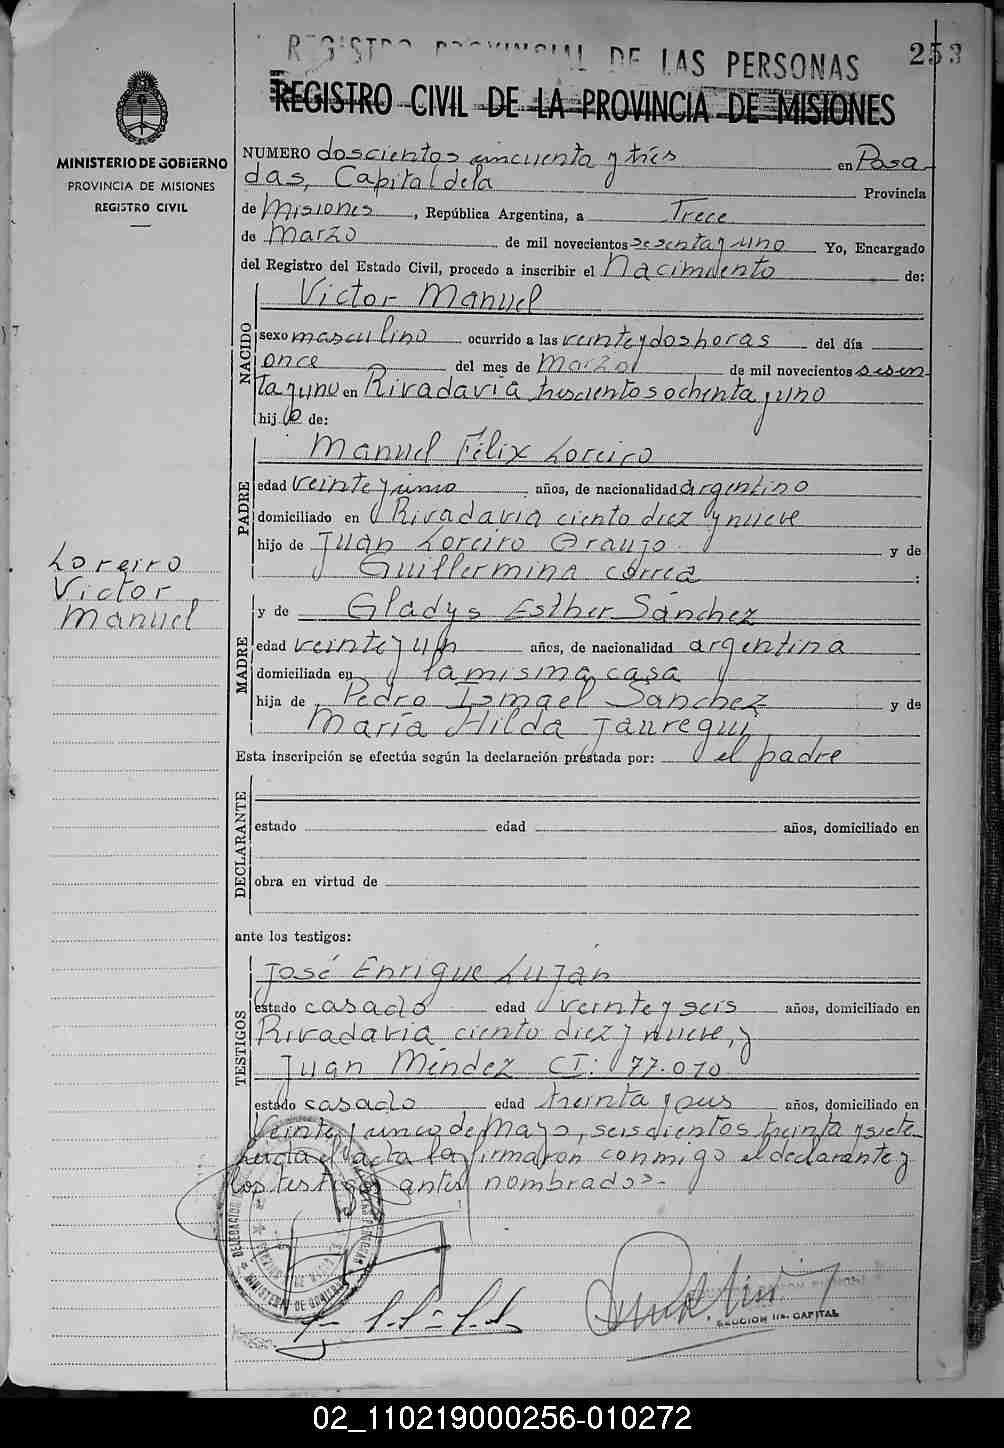 REGISTRO PROVINCIAL DE LAS PERSONAS
253
REGISTRO CIVIL DE LA PROVINCIA DE MISIONES
MINISTERIO DE GOBIERNO
PROVINCIA DE MISIONES
REGISTRO CIVIL
NUMERO doscientos cincuenta y tres en Posa-
das, Capital de la Provincia
de Misiones, República Argentina, a Trece
de Marzo de mil novecientos sesenta y uno Yo, Encargado
del Registro del Estado Civil, procedo a inscribir el Nacimiento de:
Victor Manuel
NACIDO
sexo masculino ocurrido a las veinte y dos horas del día
once del mes de Marzo de mil novecientos sesen-
ta y uno en Rivadavia trescientos ochenta y uno
hijo de:
Manuel Félix Loreiro
PADRE
edad veinte y años, de nacionalidad argentino
domiciliado en Rivadavia ciento diez y nueve
hijo de Juan Loreiro Araujo y de
Guillermina Correa :
Loreiro
Victor
Manuel
y de Gladys Esther Sánchez
MADRE
edad veinte y un años, de nacionalidad argentina
domiciliada en la misma casa
hija de Pedro Ismael Sánchez y de
María Hilda Jauregui
Esta inscripción se efectúa según la declaración prestada por: el padre
DECLARANTE
estado edad años, domiciliado en
obra en virtud de
ante los testigos:
José Enrique Luján
TESTIGOS
estado casado edad veinte y seis años, domiciliado en
Rivadavia ciento diez y nueve, y
Juan Méndez CI: 77.070
estado casado edad treinta y seis años, domiciliado en
Veinte y cinco de Mayo, seiscientos treinta y siete.
el acta la firmaron conmigo el declarante y
los testigos antes nombrados.-
DELEGACION
MINISTERIO DE GOBIERNO
SECCION 1ra. CAPITAL
02_110219000256-010272